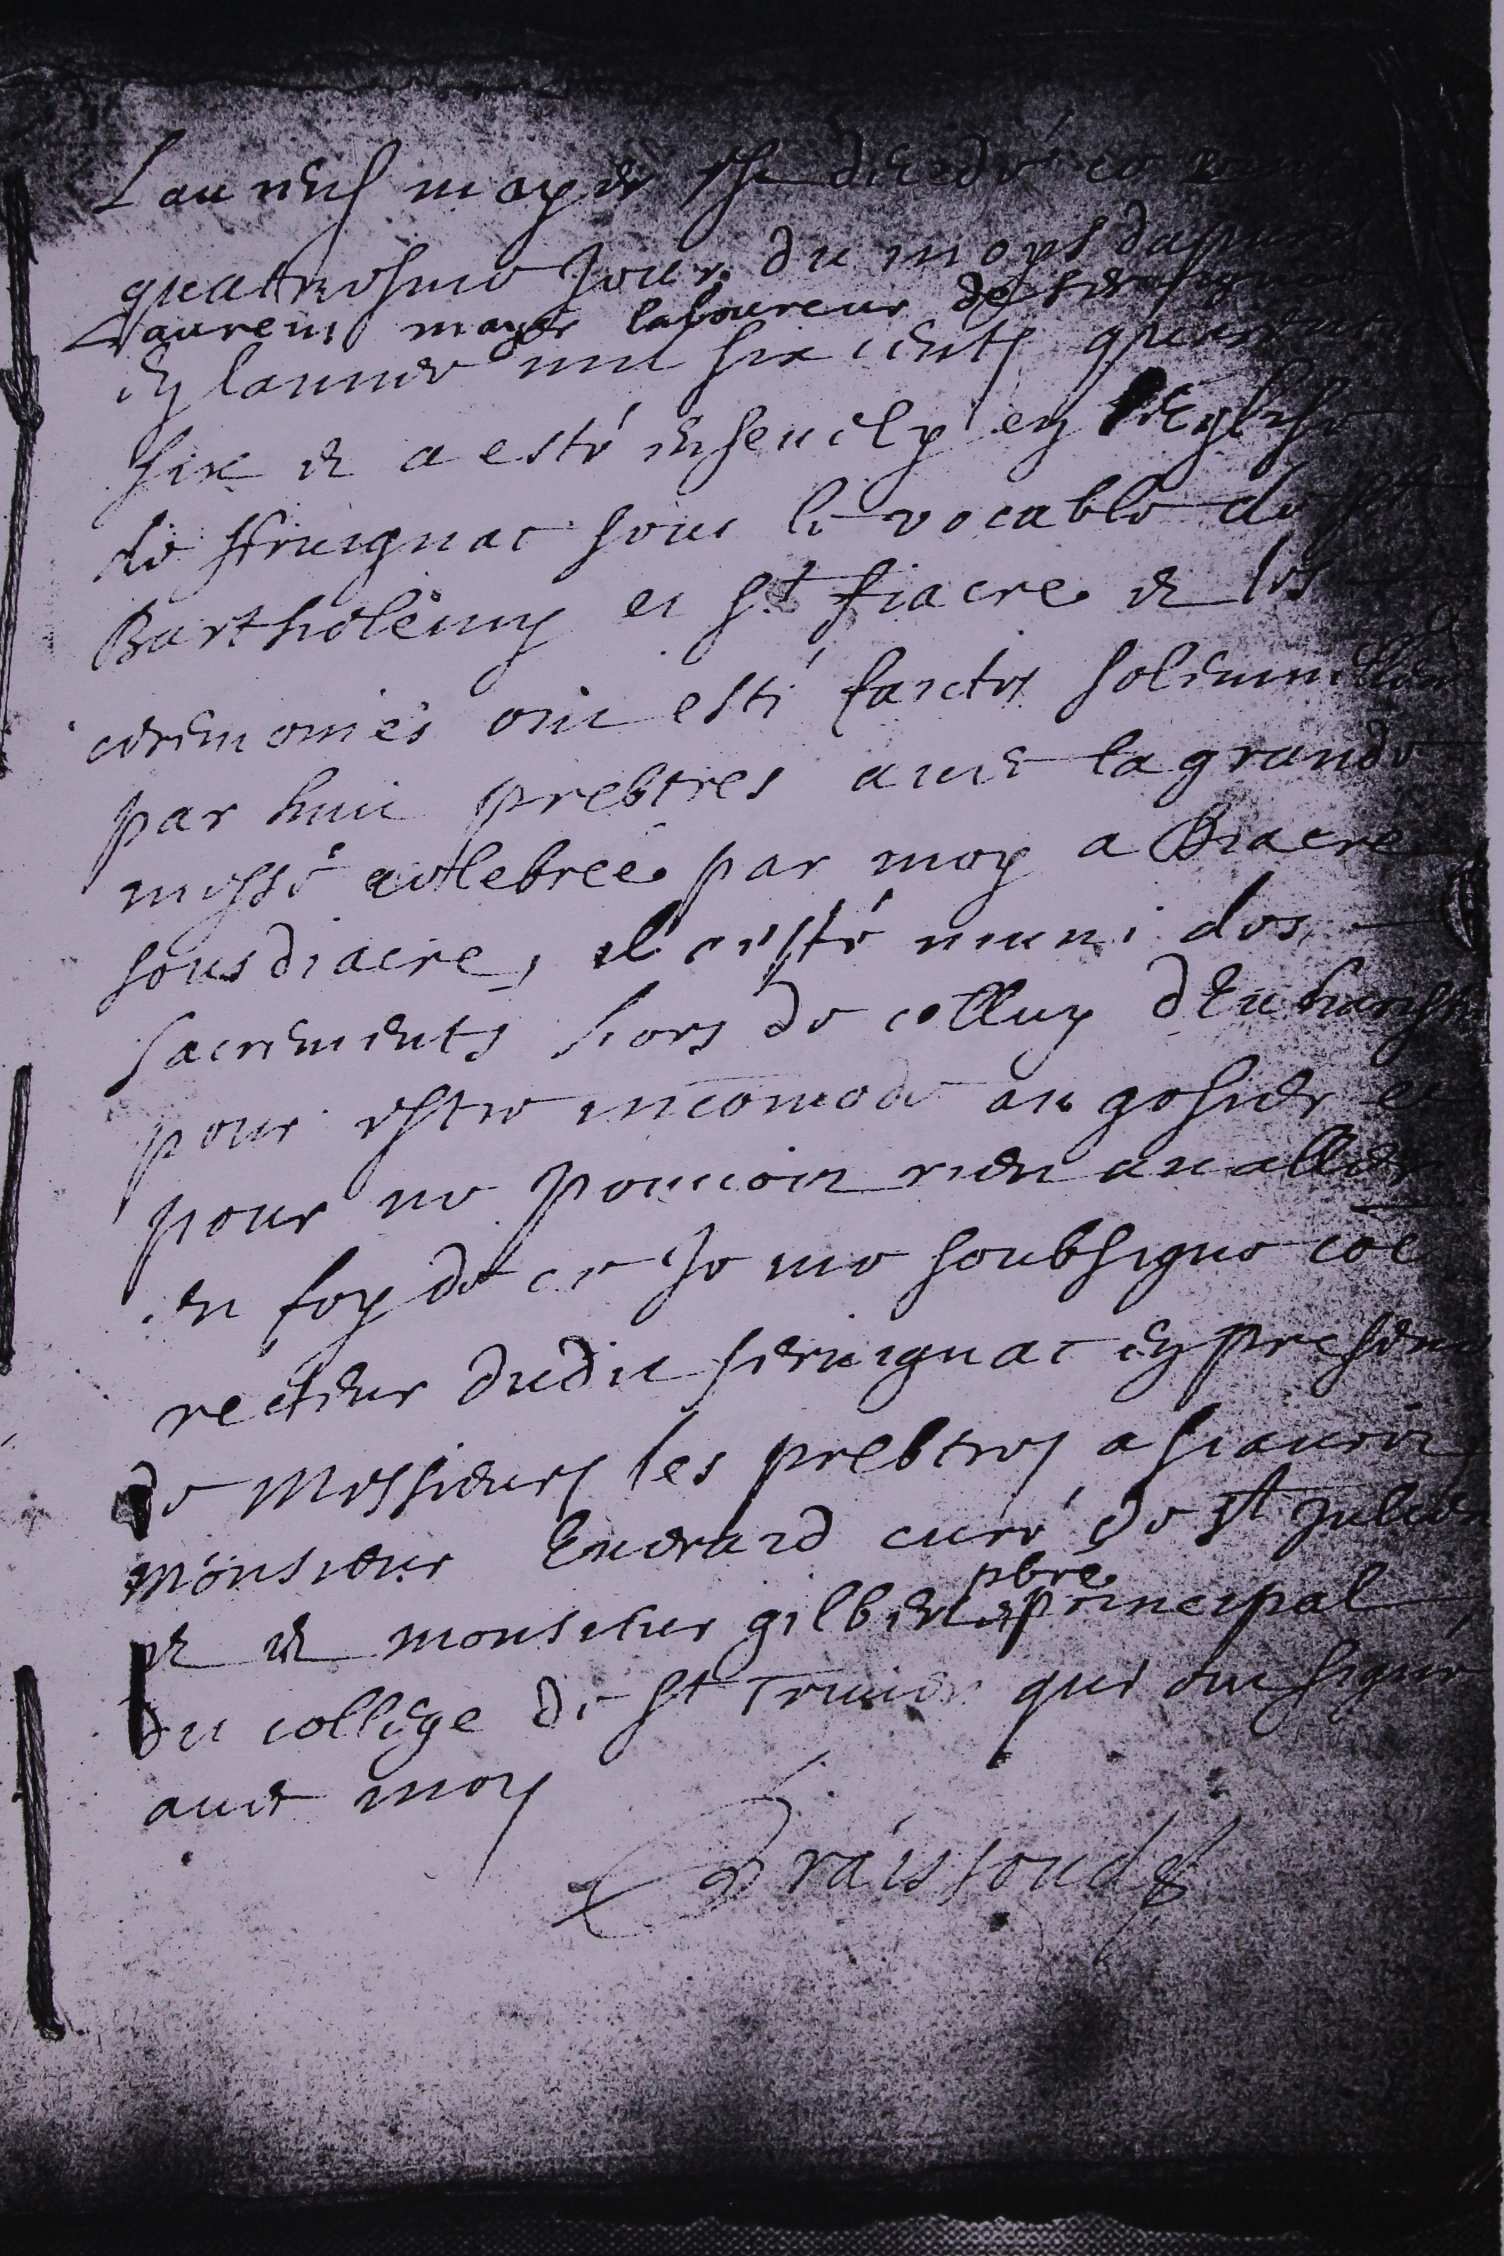 Laurens mayer est decedé ce
quatriesme Jour du moys
Laurent mayer laboureur de
en lannee mil six cents quarente
six et a esté ensevely en l'Eglise
de servignac sous le vocable de st
Barthelemy et st fiacre et les
ceremonies ont esté faictes solemnellem
par huit prebtres avec la grande
messe celebree par moy a Diacre
sousdiacre, il a esté muni des
sacrements hors de celluy d'Eucharistie
pour estre incomodé au gosier et
pour ne pouvoir rien avaller
en foy de ce Je me soubsigne coe
recteur dudit servignac en presence
de Messieurs les prebtres a scavoir
Monsieur Everard curé de st Julien
et monsieur gilbert pbre principal
du college de st qui ont signé
avec moy